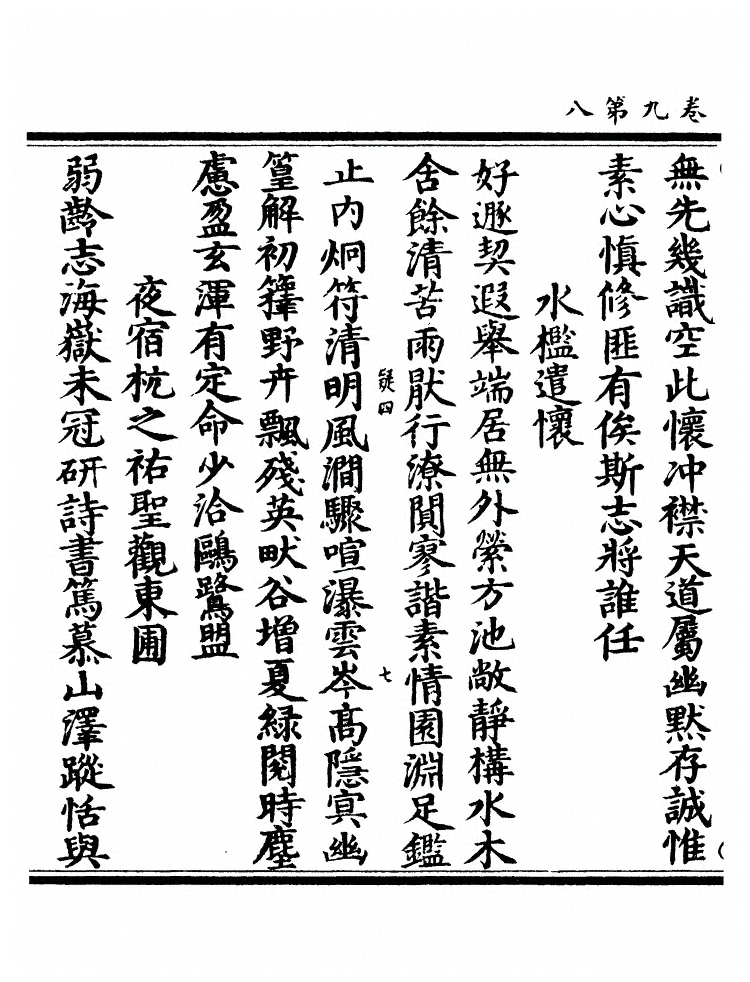 卷九第八
無先幾識空此懷冲襟天道屬幽默存誠惟
素心慎修匪有俟斯志將誰任
水檻遣懷
好遯契遐舉端居無外縈方池敞靜構水木
含餘清苦雨猒行潦閴寥諧素情園淵足鑑
疑四
七
止內炯符清明風澗驟喧瀑雲岑高隱寅幽
篁解初籜野卉飄殘英畎谷增夏綠閱時塵
慮盈玄渾有定命少洽鷗鷺盟
夜宿杭之祐聖觀東圃
弱齡志海嶽未冠研詩書篤慕山澤蹤恬與